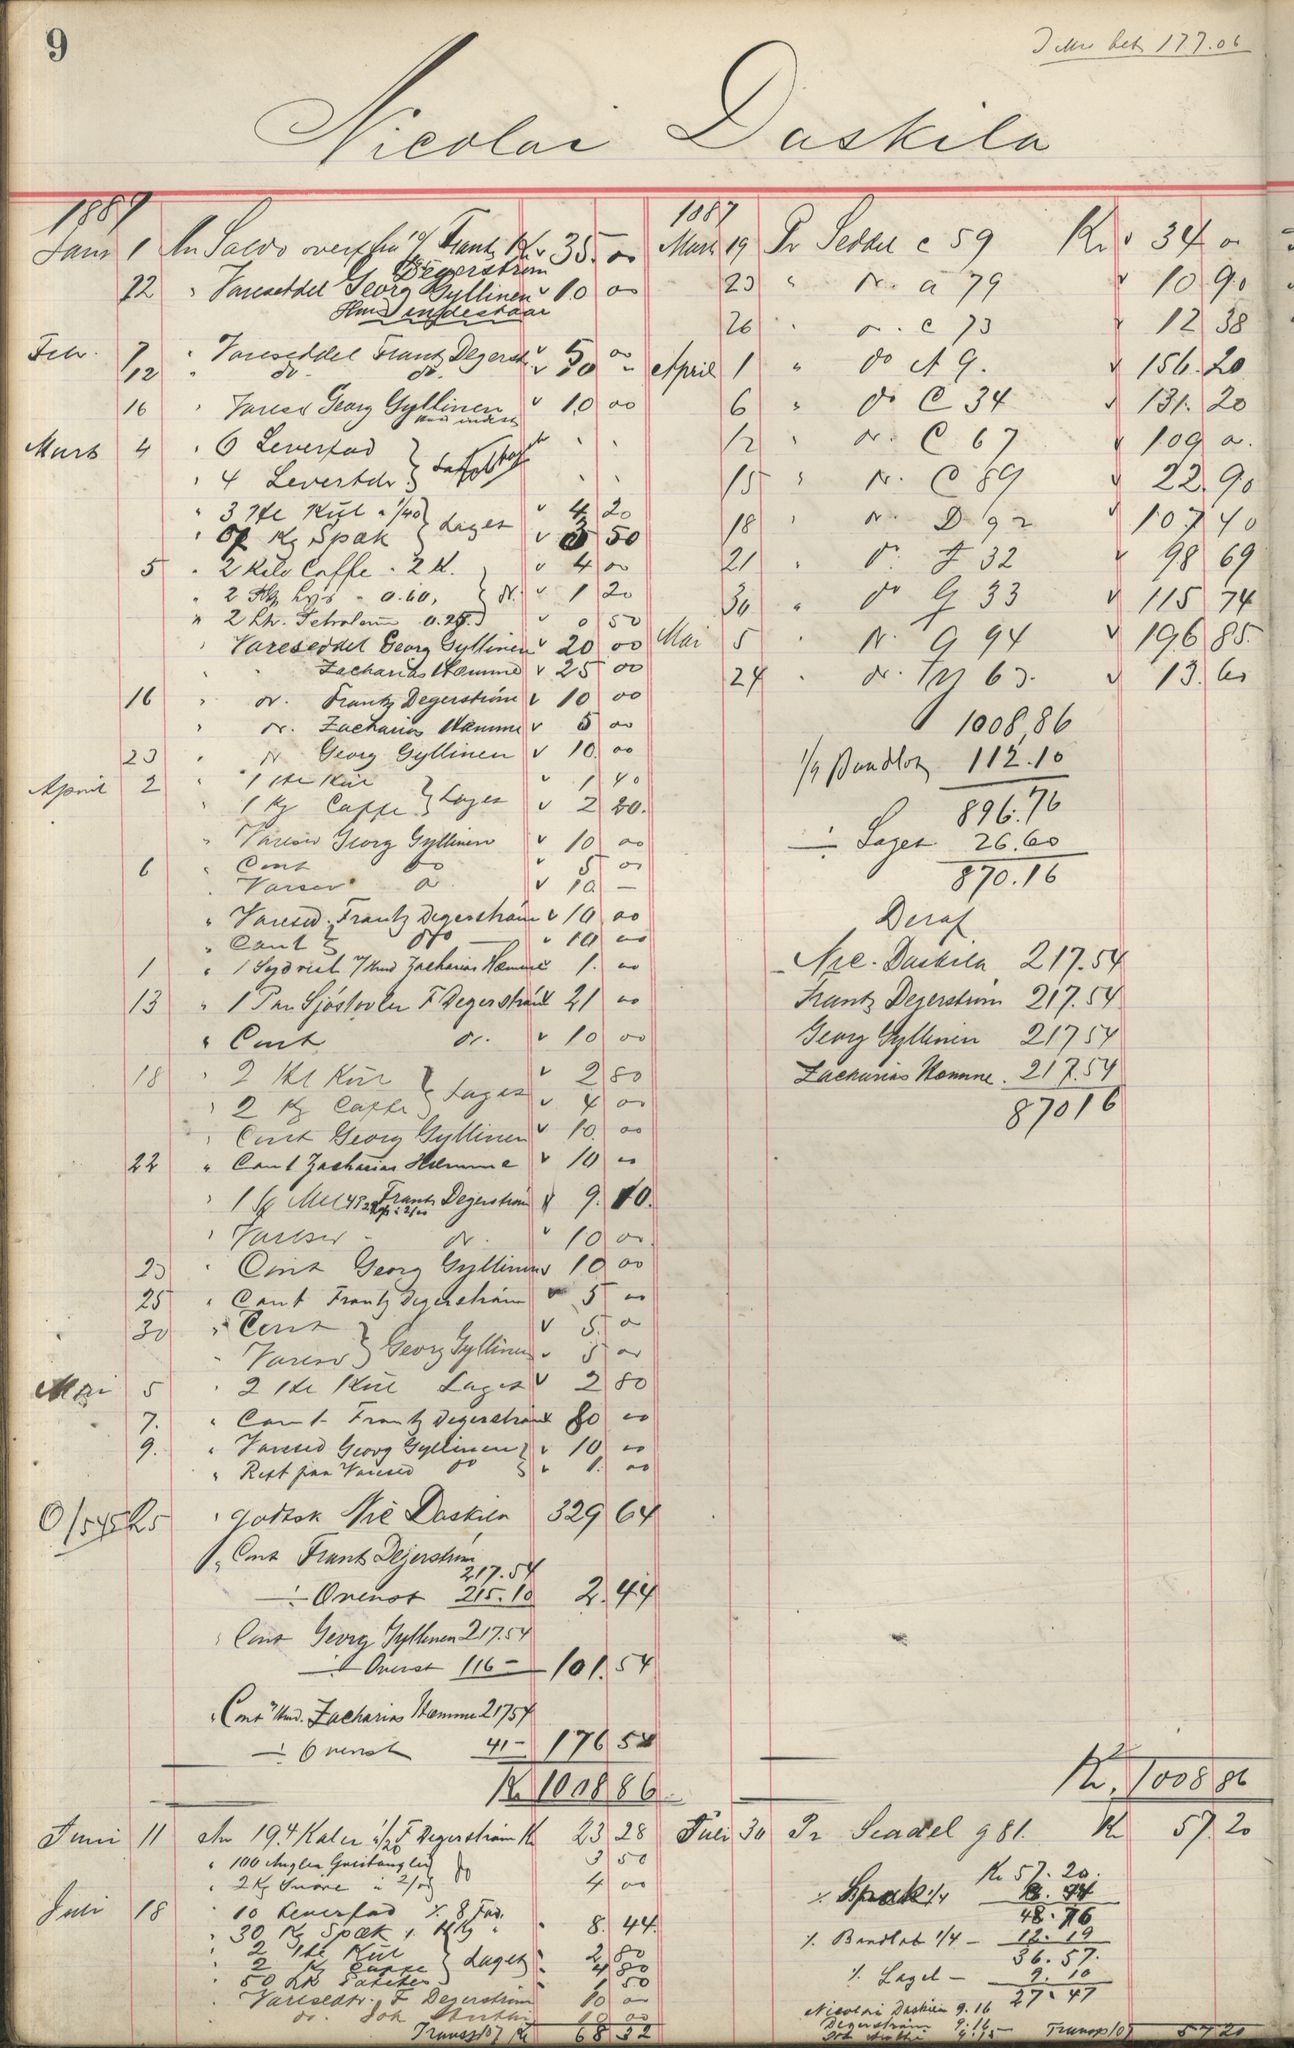 9
177.06
Nicolai Daskila
1887
Janr 1 An Saldo Frantz Degerström Kr 35.00
22 " Vareseddel Georg Gyllinen 10 00
indestaar
Febr. 7 " Vareseddel Frantz Degerst 5 00
12 " do do 10 "
16 " Varesed Georg Gyllinen 10 00
Marts 4 " 6 Leverfad
" 4
" 3 Hl Kül 1/40 } Laget 4 20
" Kg Spæk 3 50
5 " 2 Kilo Caffe " 2 K. 4 00
" 2 0.60, } do 1 20
" 2 Ltr. Petroleum 0.25 0 50
Vareseddel Georg Gyllinen 20 00
" Zacharias Hæmme 25 00
16 " do. Frantz Degerström 10 00
" do. Zacharias Hæmme 5 00
23 " do Georg Gyllinen 10 00
April 2 " 1 Hl Kül } Laget 1 40
" 1 Kg Caffe 2 20.
" Varesed Georg Gyllinen 10 00
6 " Cont do 5 00
" Varsed do 10 —
" Varesed. Frantz Degerström 10 00
" Cont do 10 00
1 " 1 Sydvest Zacharias Hæmme 1. 00
13 " 1 Par Sjöstövler F Degerström 21 00
" Cont do. 10 00
18 " 2 Hl Kül } Laget 2 80
" 2 Kg Caffe 4 00
" Cont Georg Gyllinen 10 00
22 " Cont Zacharias Hæmme 10 00
" 1 Mel Frantz Degerström 9. 10.
" Varesed do. 10 00
23 " Cont Georg Gyllinen 10 00
25 " Cont Frantz Degerström 5 00
30 " Cont } Georg Gyllinen 5 0
" Varesed 5 00
Mai 5 " 2 Hl Kül Laget 2 80
7. " Cont Frantz Degerström 80 00
9. " Varesed Georg Gyllinen 10 00
" Rest paa Varesed do 1. 00
O/545 25 " godtsk Nic Daskila 329 64
" Cont Frantz Degerström
217.54
÷ Ovenst 215.10 2.44
" Cont Georg Gyllinen 217.54
÷ Ovenst 116 — 101.54
" Cont Zacharias Hæmme 217 54
÷ Ovenst 41 — 176 54
Kr 1008 86
Juni 11 An 194 Kaler F Degerström Kr 23 28
" 100 Angler do 3 50
" 2 Kg Snöre 4 00
Juli 18 " 10 Leverfad % 8 Fad.
" 30 Kg Spæk 8. 44.
" 2 Hl Kül } Laget 2 80
" 2 Kg Caffe 4 80
" 50 1 50
" Vareseddr. F Degerström 10 00
" do. Joh 10 00
Transp 107 Kr 68 32
1887
Mars 19 Pr Seddel c 59 Kr 34 00
23 " do. a 79 10 90
26 " do. C 73 12 38
April 1 " do A 9. 156.20
6 " do C 34 131.20
12 " do. C 67 109 00
15 " do. C 89 22.90
18 " do. D 92 107 40
21 " do F 32 98 69
30 " do G 33 115 74
Mai 5 " do. G 94 196 85
24 " do. M 63. 13.60
1008,86
1/9 Baadlot 112.10
896.76
÷ Laget 26.60
870.16
Deraf
Nic. Daskila 217.54
Frantz Degerström 217.54
Georg Gyllinen 217 54
Zacharias Hæmme. 217.54
870 16
Kr. 1008 86
Juli 30 Pr Seddel g 81. Kr 57.20
Kr 57.20.
% Spæk 1/4
48.76
% Baadlot 1/4 — 12.19
36.57.
% Laget — 9.10
27.47
Nicolai Daskila 9.16
Degerström 9.16
Joh 9.15 Transp 107 57 20